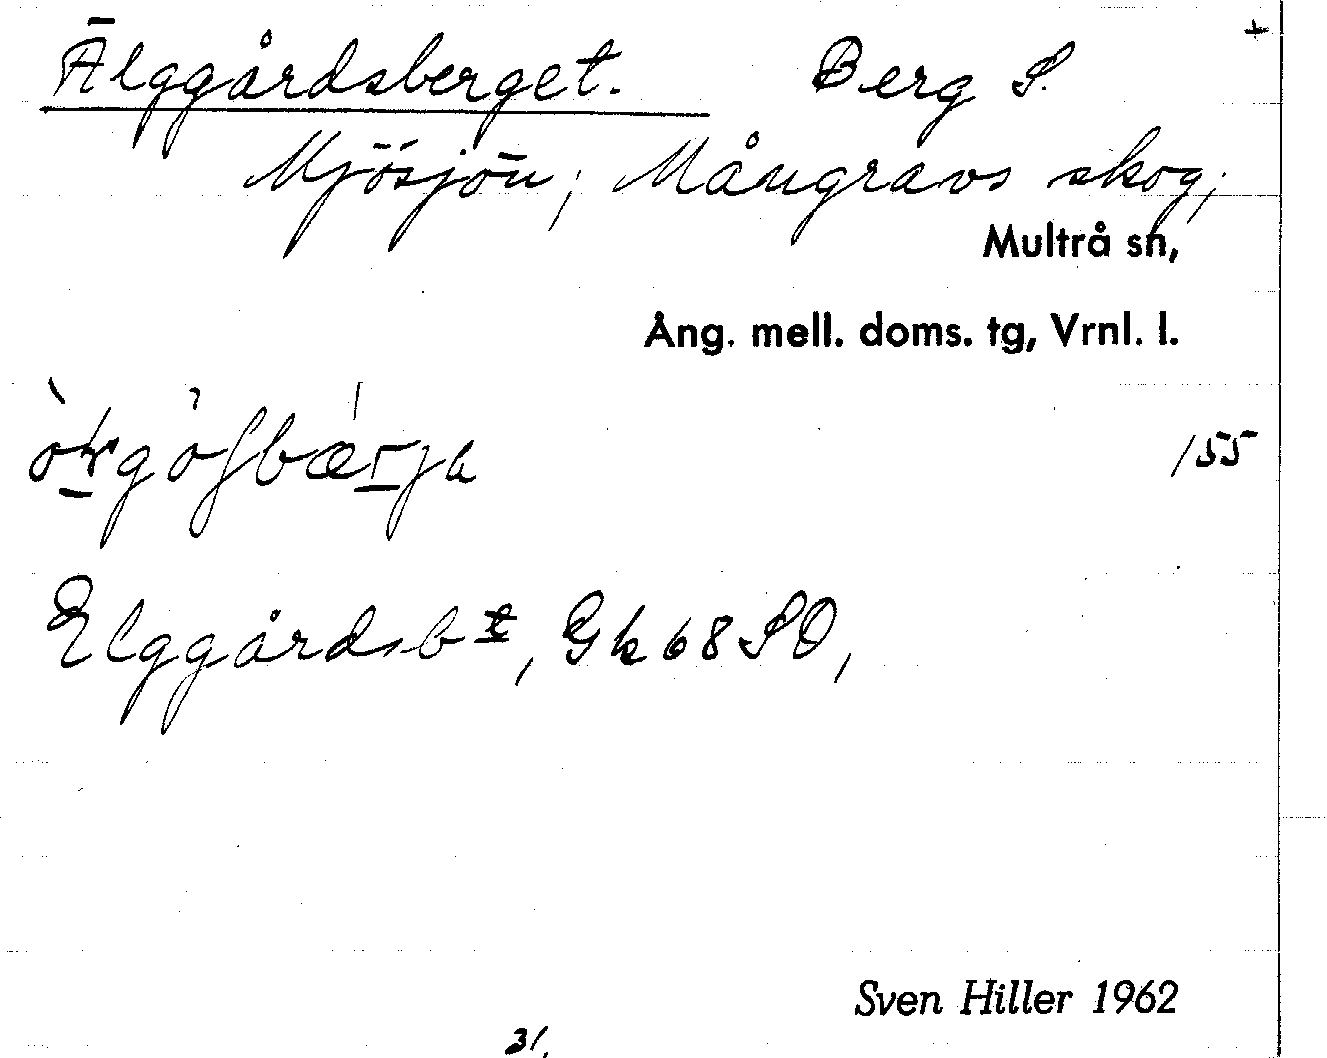 +
Älggårdsberget. Berg S.
Mjösjön; Mångravs skog;
Multrå sn,
Ång. mell. doms. tg, Vrnl. l.
155
Elggårdsbt, Gk 68 SO,
Sven Hiller 1962
31.